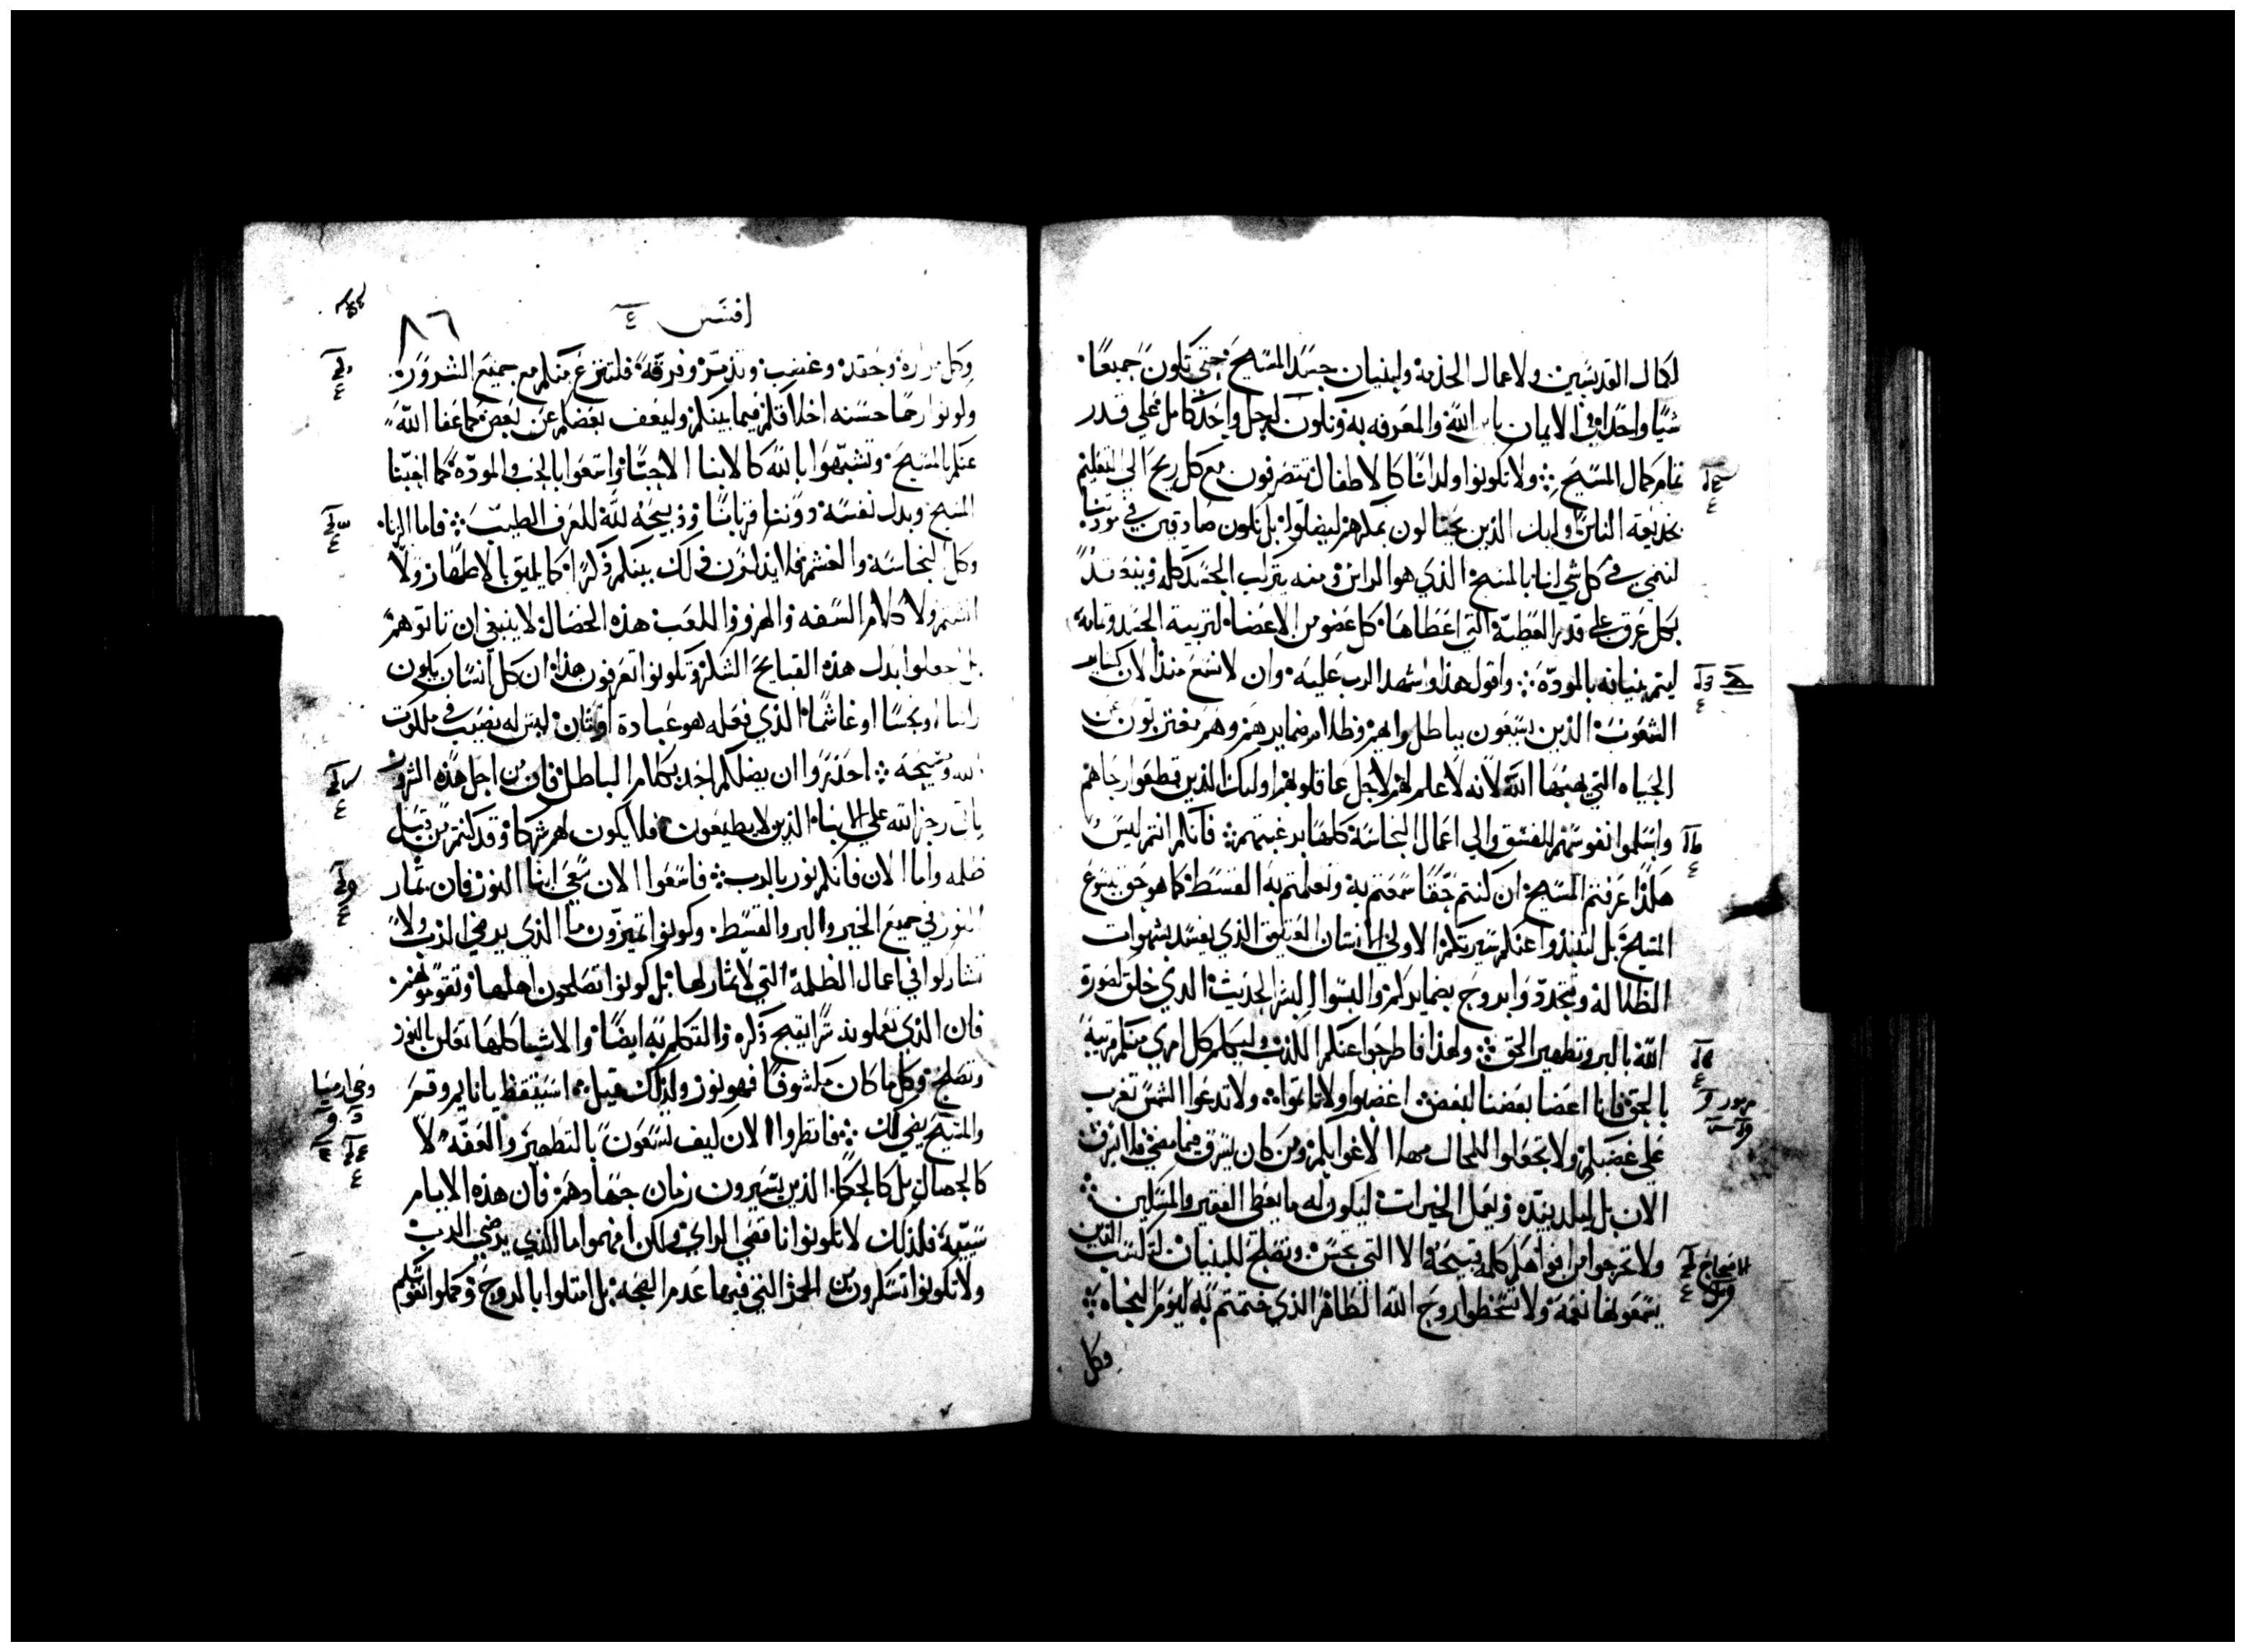 لكمال القديسين ولاعمال الخدمة ولبنيان جسد المسيح حتي نكون جميعًا
شيًا واحدًا في الايمان بابن الله والمعرفه به ونكون لرجل واحد كامل علي قدر
تمام كمال المسيح ولا نكونوا ولدانًا كالاطفال نتصرفون مع كل ريح الي تعليم
بخديعة الناس اوليك الذين يحتالون بمكرهم ليضلوا بل نكون صادقين في مودتنا
لننمي في كل شي لنا بالمسيح الذي هو الراس ومنه يتركب الجسد كله ويتعقد
بكل عرق علي قدر العطية التي اعطاها كل عضو من الاعضا لتربية الجسد وتمامه
ليتم بنيانه بالمودة واقول هذا واشهد الرب عليه وان لا نسع منذ الان كساير
الشعوب الذين يسعون بباطل رايهم وظلام ضمايرهم وهم مغتربون عن
الحياه التي يهبها الله لانه لا علم لهم لاجل عما قلوبهم اوليك الذين قطعوا رجاهم
واسلموا نفوسهم للفسق والي اعمال النجاسة كلها برغبتهم فانكم انتم ليس
هكذا عرفتم المسيح ان كنتم حقًا سمعتم به وتعلمتم به القسط كما هو حق يسوع
المسيح بل انبذوا عنكم سيرتكم الاولي الانسان العتيق الذي يفسد بشهوات
الضلاله وتتجددوا بروح ضمايركم والبسوا البشر الحديث الذي خلق لصورة
الله بالبر وتطهير الحق ولهذا فاطرحوا عنكم الكذب وليكلم كل امري منكم قريبه
بالحق فانا اعضا بعضنا لبعض اغضبوا ولا تاتموا ولا تدعوا الشمس تغرب
علي غضبكم ولا تجعلوا للمحال مهدا لاغوايكم ومن كان يسرق فيما مضي فلا يسرق
الان بل ليكد بيديه ويعمل الخيرات ليكون له ما يعطي الفقير والمسكين
ولا تخرجوا من افواهكم كلمة قبيحة الا التي تحسن وتصلح للبنيان لتكتسب الذين
يسمعونها نعمة ولا تسخطوا روح الله الطاهر الذي ختمتم به ليوم النجاه
وكل
افسس ٤
٨٦
وكل مرارة وحقد وغضب وتذمر وفرقة فلتنزع منكم مع جميع الشرور
وكونوا رحما حسنه اخلاقكم فيما بينكم وليعف بعضكم عن بعض كما عفا الله
عنكم بالمسيح وتشبهوا بالله كالابنا الاحبا واسعوا بالحب والمودة كما احبنا
المسيح وبدل نفسه دوننا قربانًا وذبيحة لله للعرف الطيب فاما الزنا
وكل النجاسه والغشم فلا يذكرن في لك بينكم ذكرًا كما يليق بالاطهار ولا
الشتم ولا كلام السفه والهزو واللعب هذه الخصال لا ينبغي ان تاتوهم
بل اجعلوا بدل هذه القبايح الشكر وتكونوا تعرفون هذا ان كل انسان يكون
زانيا او نجسًا او غاشمًا الذي فعله هو عبادة اوثان ليس له نصيب في ملكوت
الله ومسيحه احذروا ان يضلكم احد بكلام الباطل فان من اجل هذه الشرور
ياتي رجز الله علي الابنا الذين لا يطيعون فلا يكون لهم شركا وقد كنتم من قبل
ظلمه واما الان فانكم نور بالرب فاسعوا الان سعي ابنا النور فان ثمار
النور في جميع الخير والبر والقسط وكونوا تميزون ما الذي يرضي الرب ولا
تشاركوا في اعمال الظلمة التي لا ثمار لها بل كونوا تصلحون اهلها وتقومونهم
فان الذي يعملونه سرًا يقبح ذكره والتكلم به ايضًا والاشيا كلها تعلن بالنور
وتصلح وكل ما كان مكشوفًا فهو نور ولذلك قيل استيقظ يا نايم وقم
والمسيح يضي لك فانظروا الان كيف تسعون بالتطهير والعفه لا
كالجهال بل كالحكما الذين يشترون زمان جهادهم فان هذه الايام
سيية فلذلك لا تكونوا ناقصي الراي ولكن افهموا ما الذي يرضي الرب
ولا تكونوا تسكرون من الخمر التي فيها عدم الصحه بل امتلوا بالروح وكلوا انفسكم